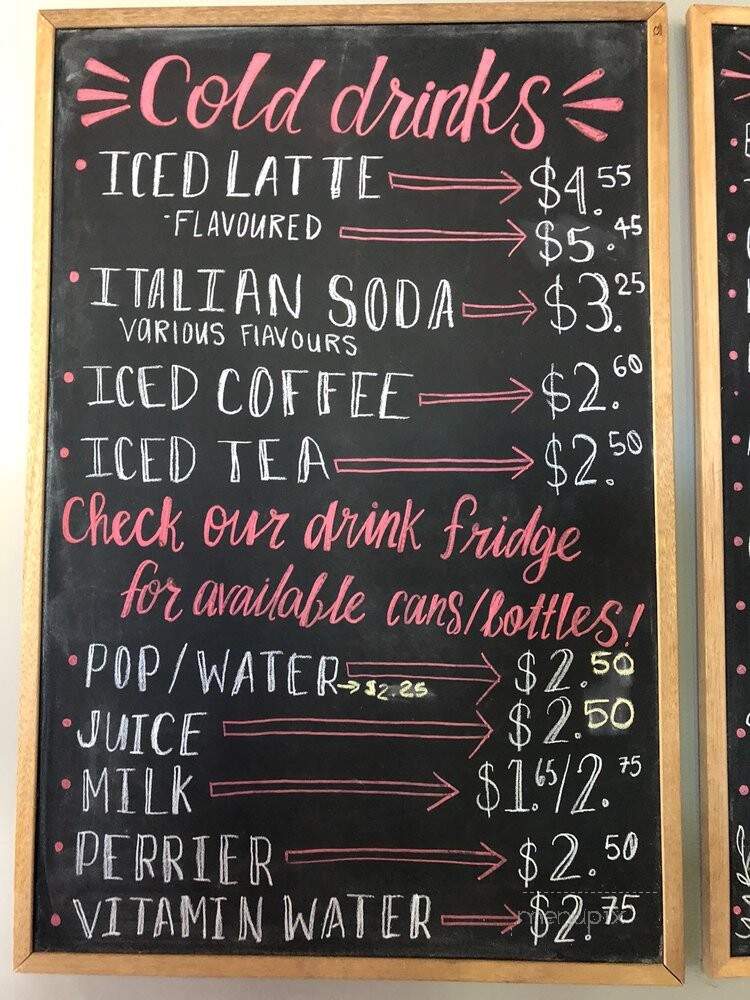 Cold drinks
• ICED LATTE → $4.55
-FLAVOURED → $5.45
• ITALIAN SODA → $3.25
VARIOUS FLAVOURS
• ICED COFFEE → $2.60
• ICED TEA → $2.50
Check our drink fridge
for available cans/bottles!
• POP/WATER → $2.50
→ $2.25
• JUICE → $2.50
• MILK → $1.65/2.75
• PERRIER → $2.50
• VITAMIN WATER → $2.75
menupix